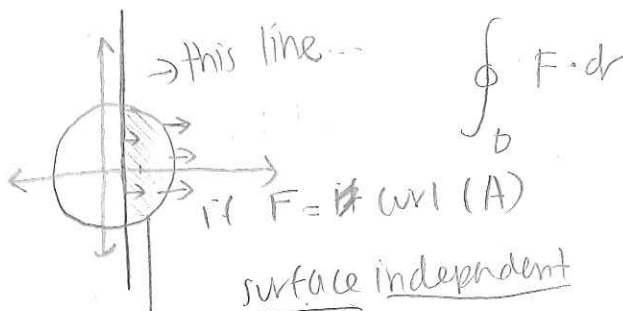 → this line...
∮ F · dr
D
if F = curl (A)
surface independent